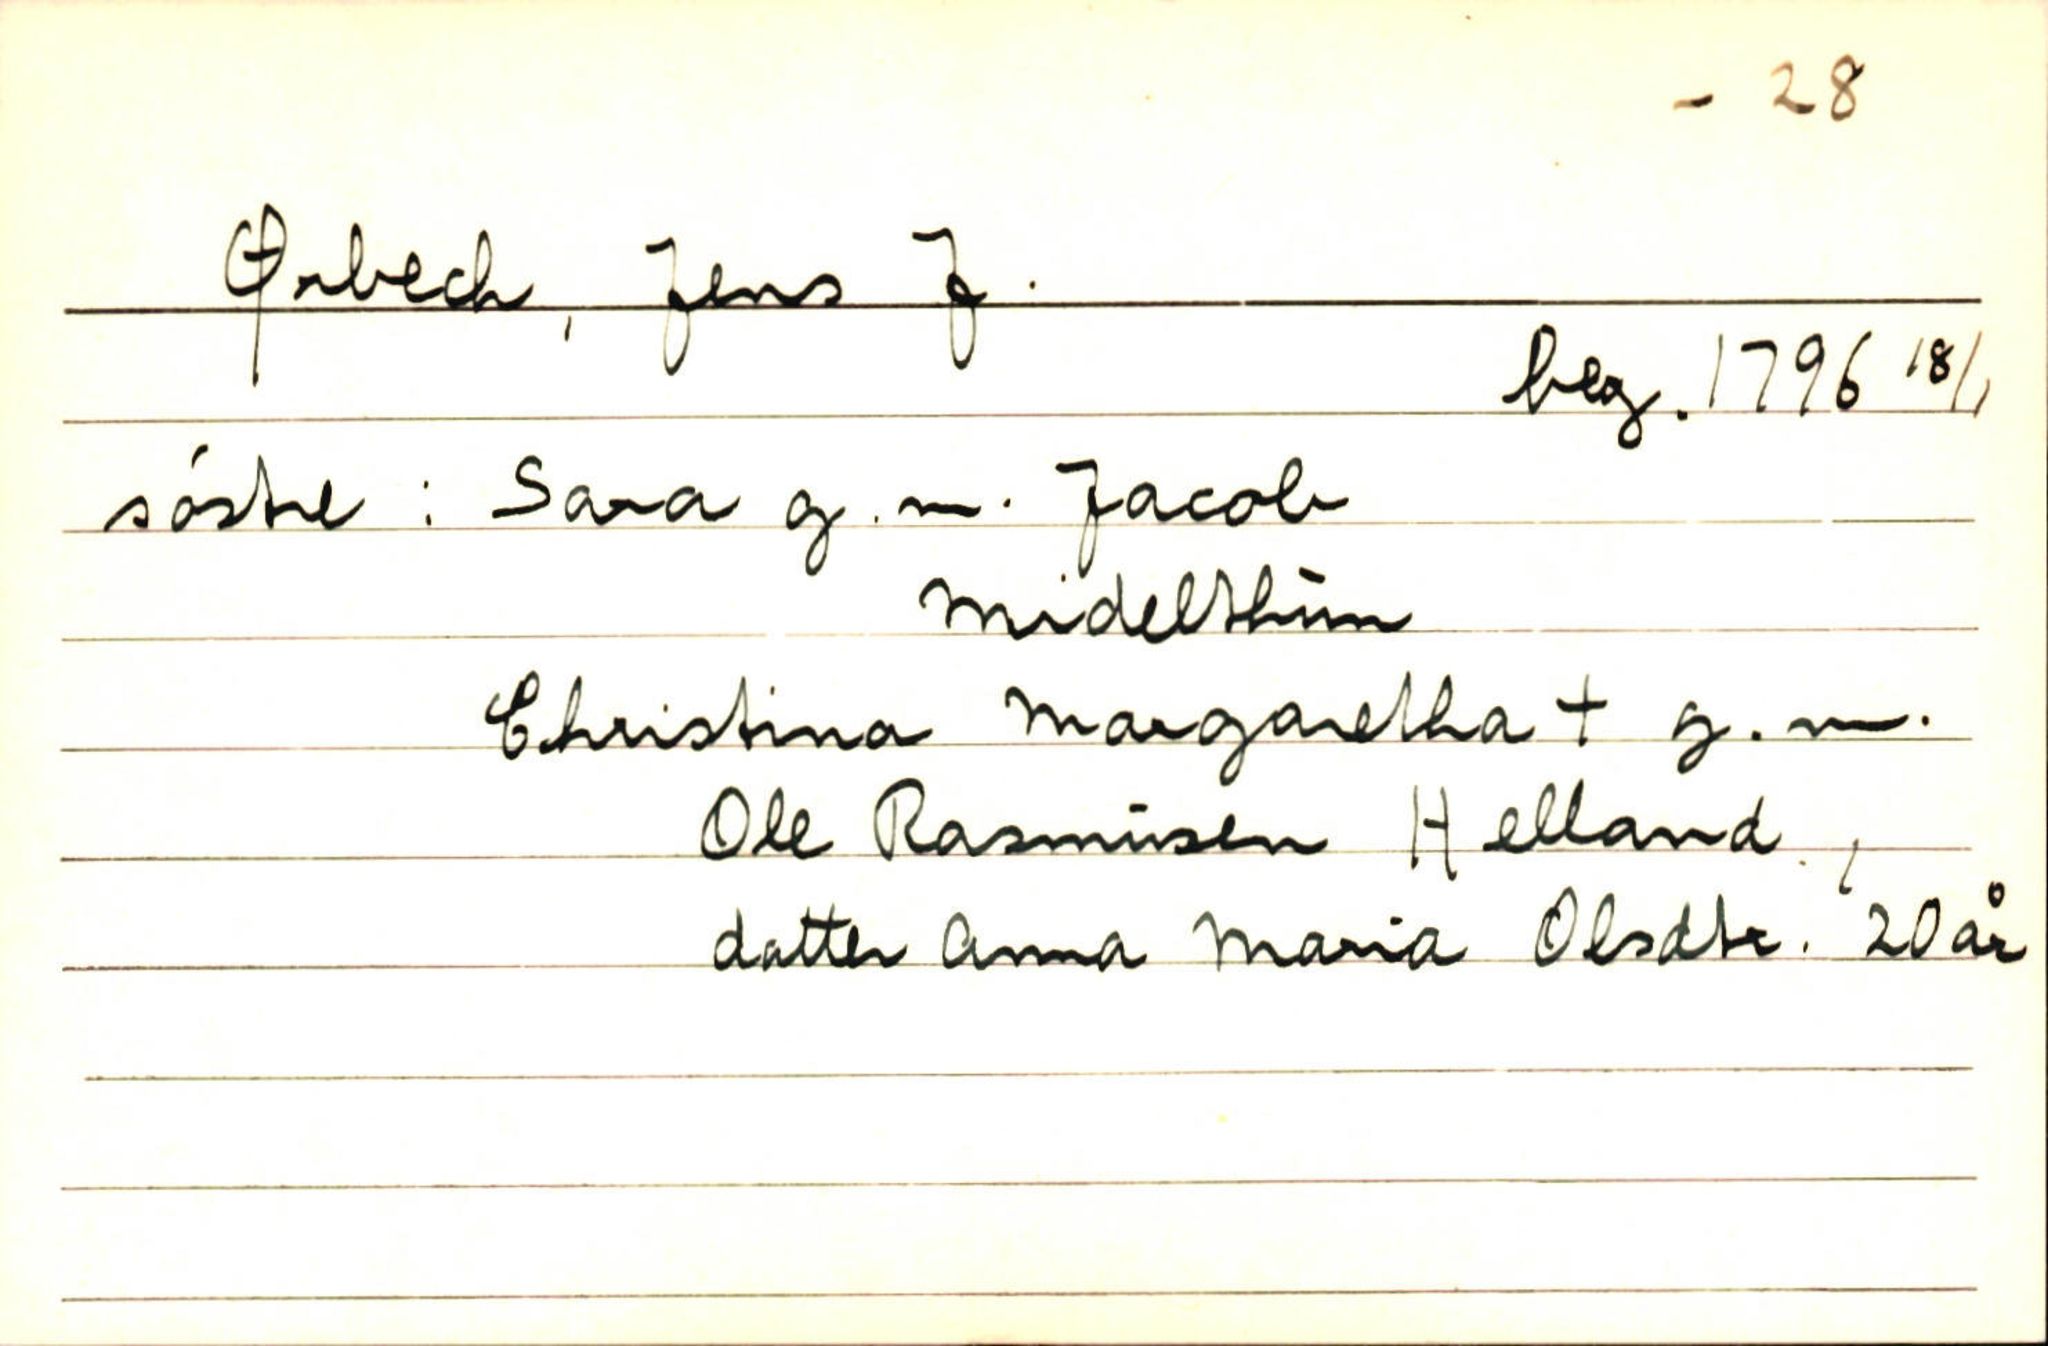 - 28
Ørbech, Jens J.
beg. 1796 18/1
søstre : Sara g. m. Jacob
Midelthun
Christina Margaretha + g. m.
Ole Rasmusen Helland,
datter Anna Maria Olsdtr. 20 år